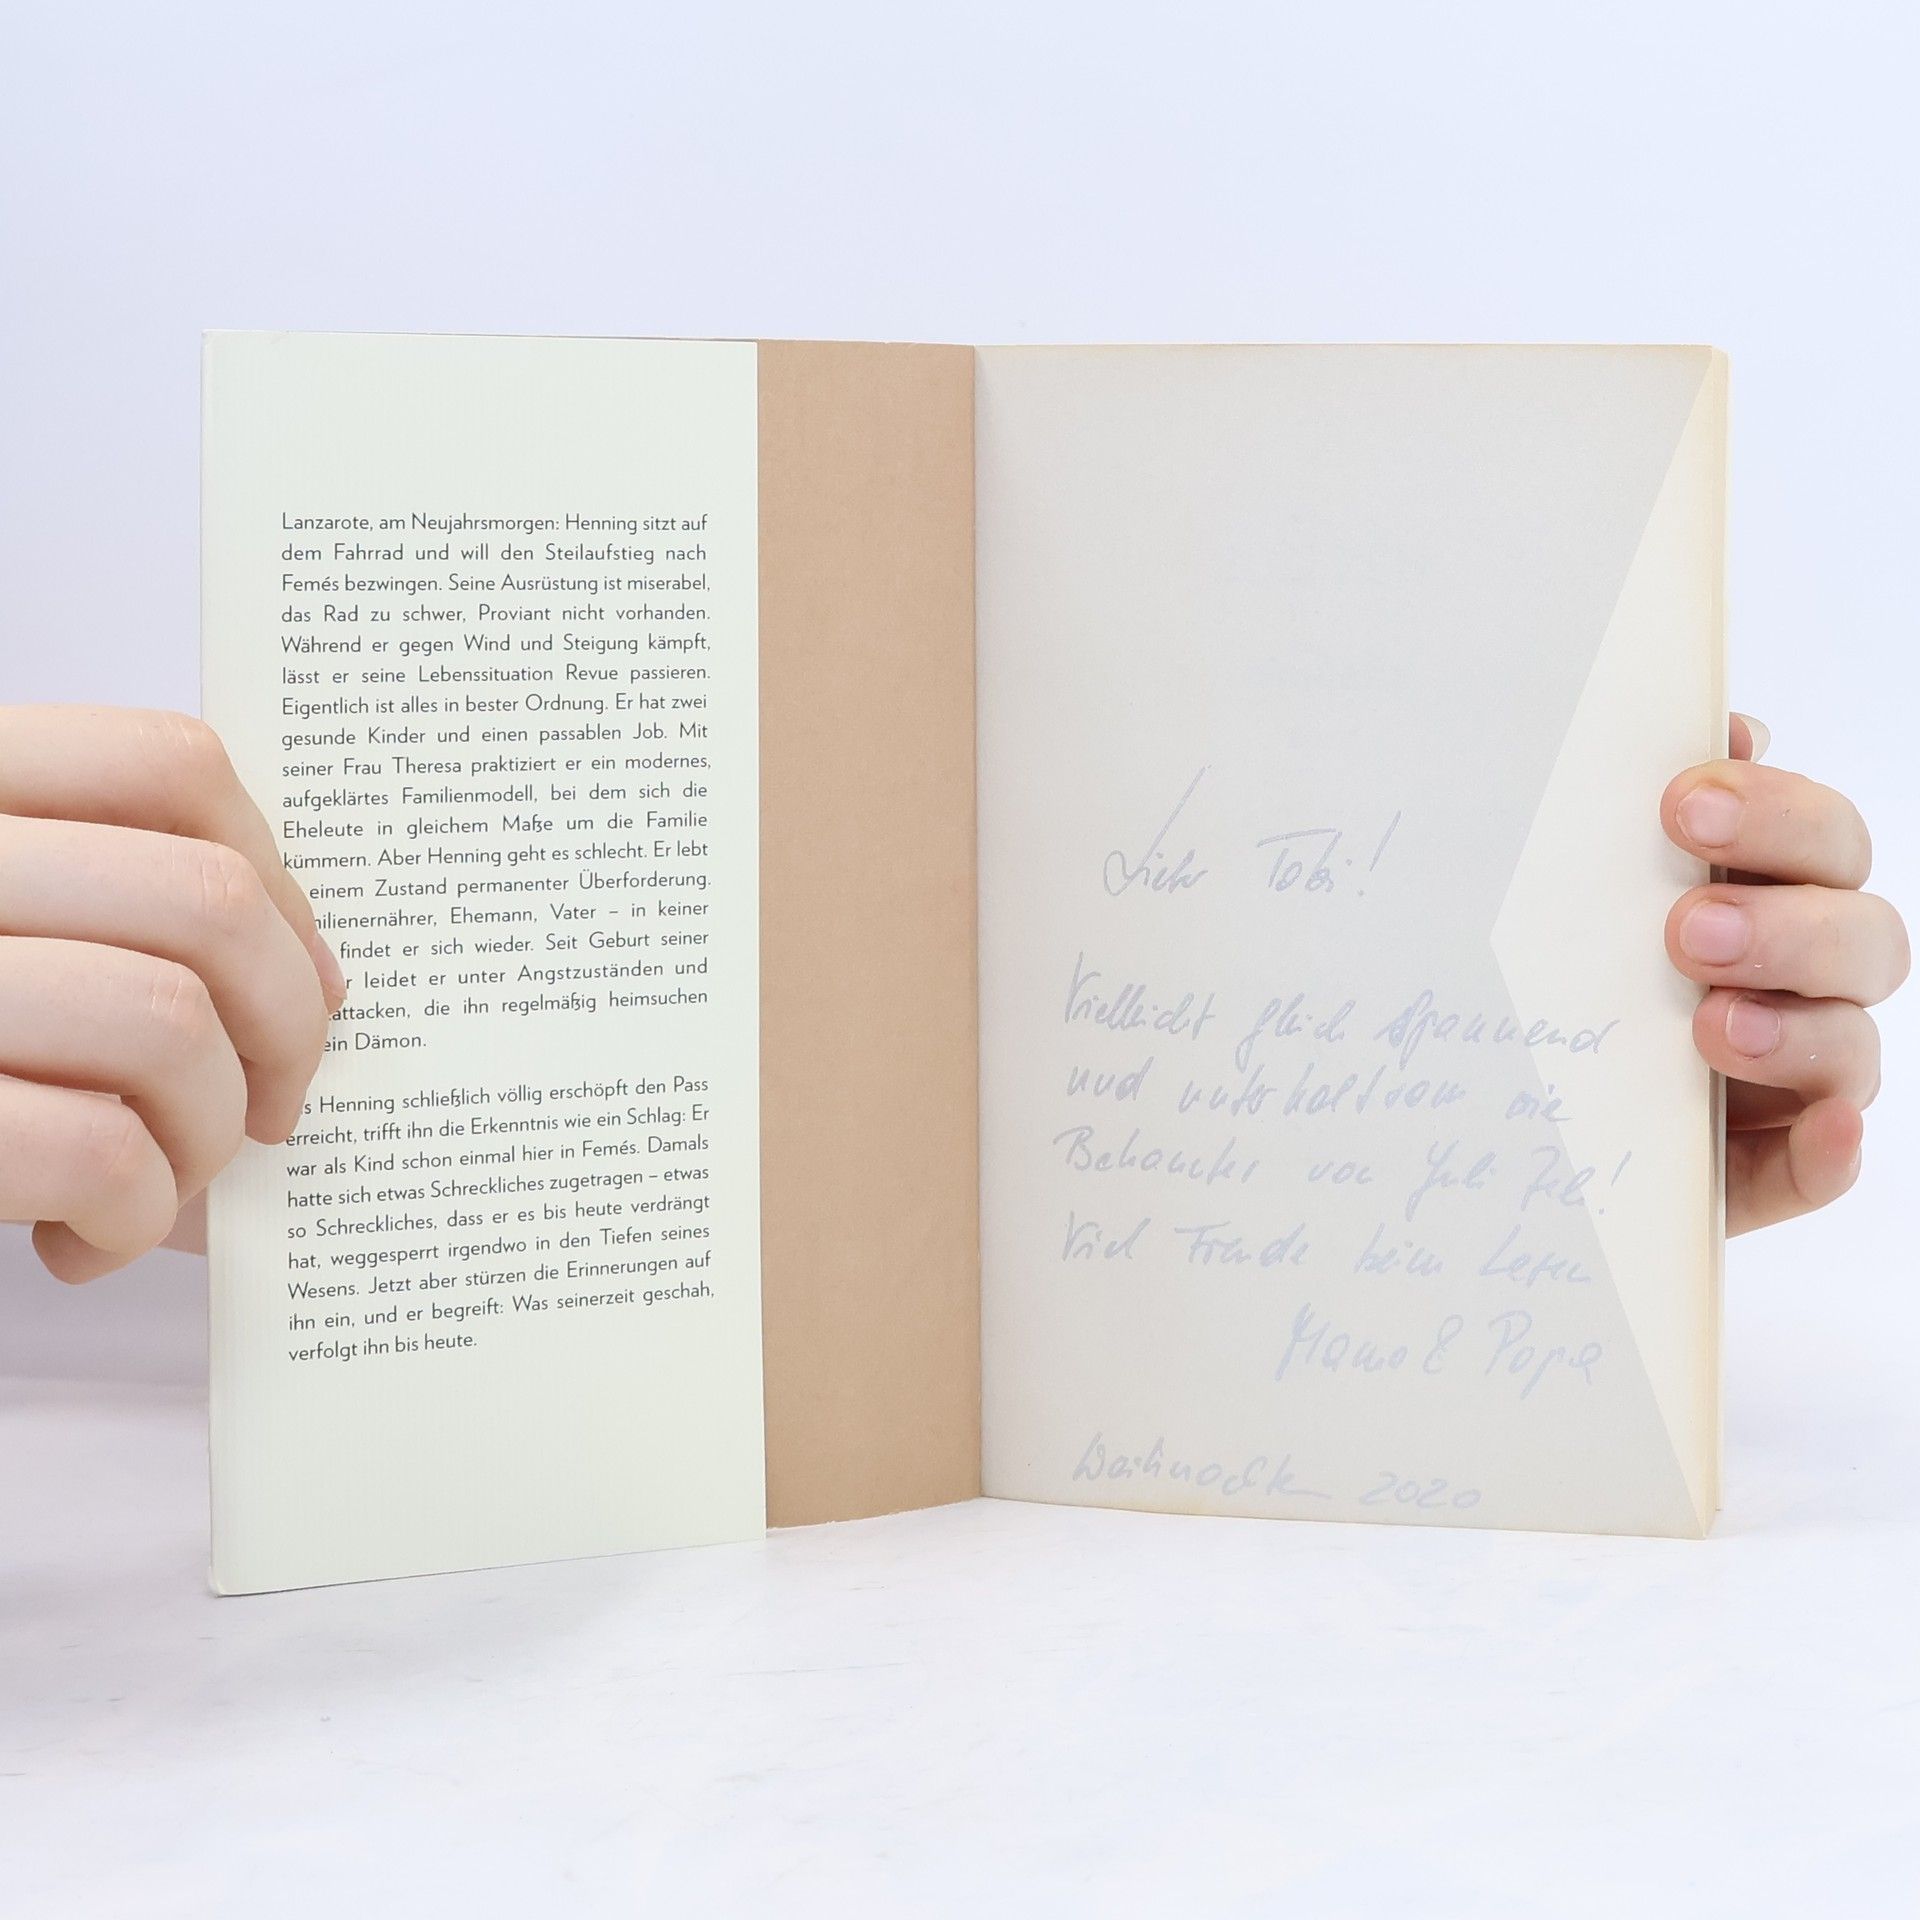 Lanzarote, am Neujahrsmorgen: Henning sitzt auf
dem Fahrrad und will den Steilaufstieg nach
Femés bezwingen. Seine Ausrüstung ist miserabel,
das Rad zu schwer, Proviant nicht vorhanden.
Während er gegen Wind und Steigung kämpft,
lässt er seine Lebenssituation Revue passieren.
Eigentlich ist alles in bester Ordnung. Er hat zwei
gesunde Kinder und einen passablen Job. Mit
seiner Frau Theresa praktiziert er ein modernes,
aufgeklärtes Familienmodell, bei dem sich die
Eheleute in gleichem Maße um die Familie
kümmern. Aber Henning geht es schlecht. Er lebt
einem Zustand permanenter Überforderung.
ilienernährer, Ehemann, Vater – in keiner
findet er sich wieder. Seit Geburt seiner
r leidet er unter Angstzuständen und
attacken, die ihn regelmäßig heimsuchen
ein Dämon.
s Henning schließlich völlig erschöpft den Pass
erreicht, trifft ihn die Erkenntnis wie ein Schlag: Er
war als Kind schon einmal hier in Femés. Damals
hatte sich etwas Schreckliches zugetragen – etwas
so Schreckliches, dass er es bis heute verdrängt
hat, weggesperrt irgendwo in den Tiefen seines
Wesens. Jetzt aber stürzen die Erinnerungen auf
ihn ein, und er begreift: Was seinerzeit geschah,
verfolgt ihn bis heute.
Lieber Tobi!
Vielleicht gleich spannend
und unterhaltsam wie
Bekanntes von Juli Zeh!
Viel Freude beim Lesen
Mama & Papa
Weihnachten 2020